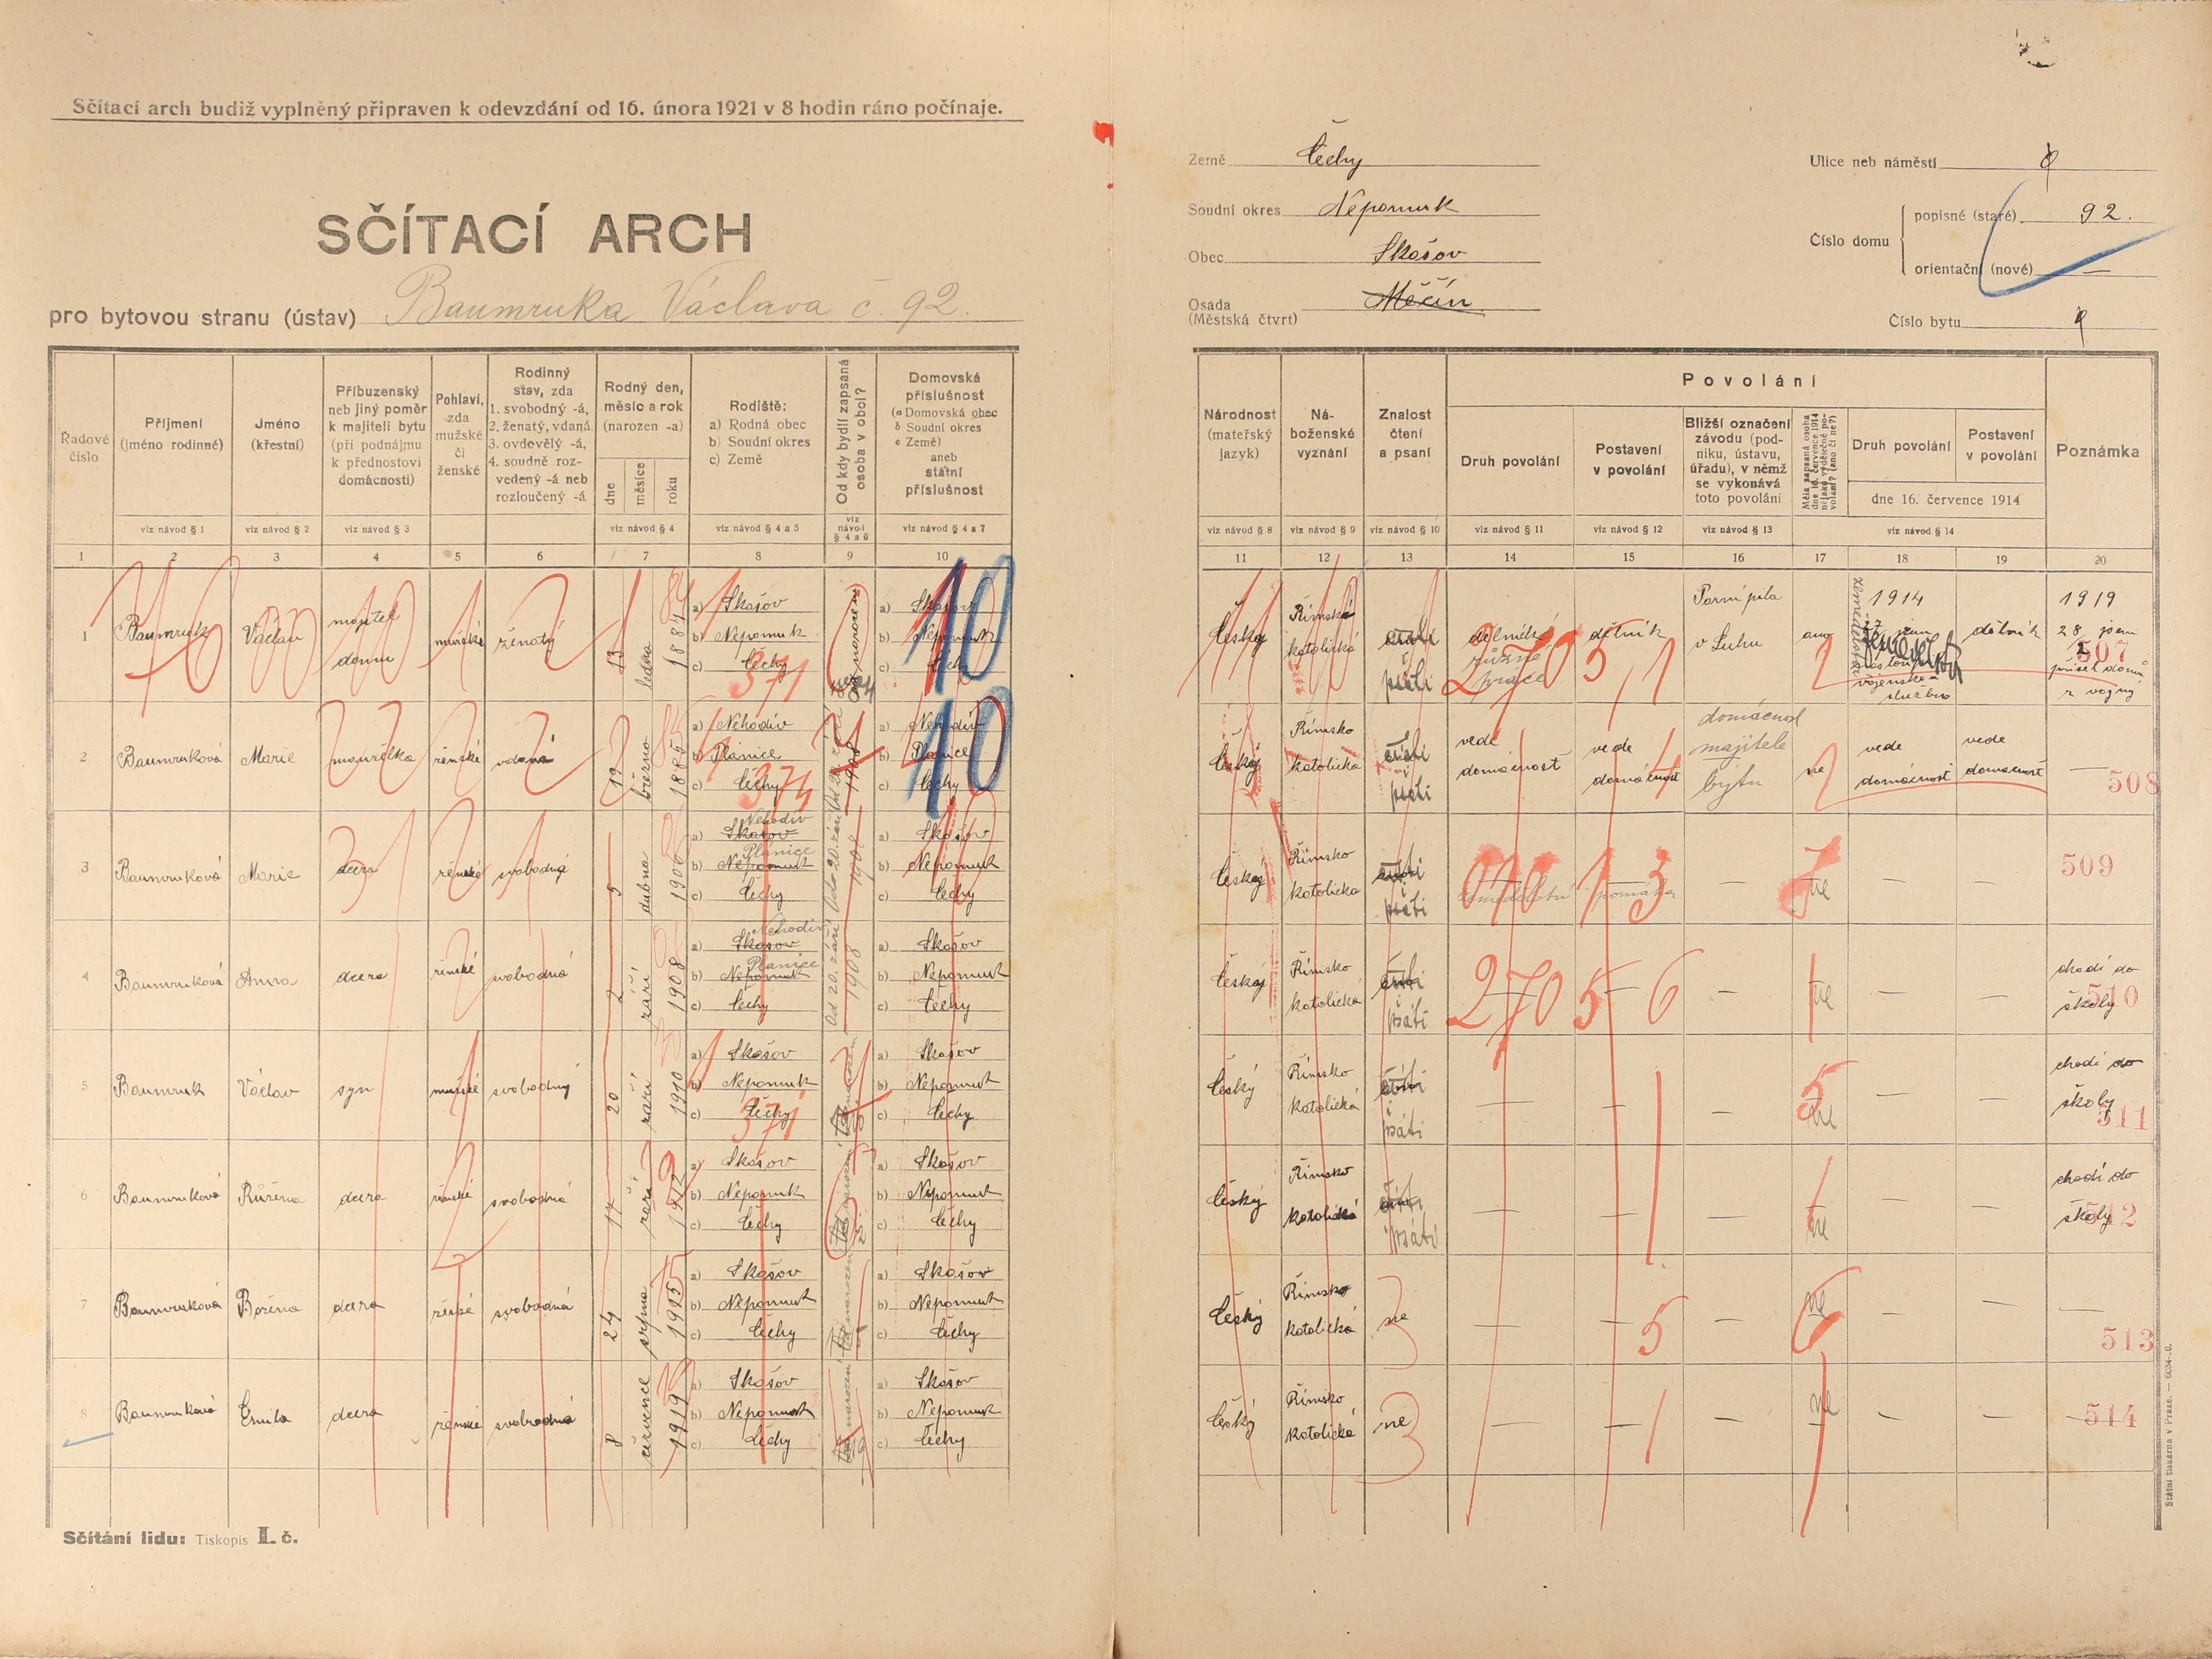 Sčítací arch budiž vyplněný připraven k odevzdání od 16. února 1921 v 8 hodin ráno počínaje.
SČÍTACÍ ARCH
pro bytovou stranu (ústav) Baumruka Václava č. 92.
Země Čechy
Soudní okres Nepomuk
Obec Skašov
Osada (Městská čtvrt) Měčín
Ulice neb náměstí
Číslo domu
popisné (staré) 92.
orientační (nové) —
Číslo bytu
Řadové číslo
Příjmení (jméno rodinné)
Jméno (křestní)
Příbuzenský neb jiný poměr k majiteli bytu (při podnájmu k přednostovi domácnosti)
Pohlaví, zda mužské či ženské
Rodinný stav, zda 1. svobodný -á, 2. ženatý, vdaná 3. ovdovělý -á, 4. soudně rozvedený -á neb rozloučený -á
Rodný den, měsíc a rok (narozen -a)
dne měsíce roku
Rodiště: a) Rodná obec b) Soudní okres c) Země
Od kdy bydlí zapsaná osoba v obci?
Domovská příslušnost (a Domovská obec b Soudní okres c Země) aneb státní příslušnost
viz návod § 1 viz návod § 2 viz návod § 3 viz návod § 4 viz návod § 4 a 5 viz návod § 4 a 6 viz návod § 4 a 7
1 2 3 4 5 6 7 8 9 10
Národnost (mateřský jazyk)
Náboženské vyznání
Znalost čtení a psaní
Povolání
Druh povolání
Postavení v povolání
Bližší označení závodu (podniku, ústavu, úřadu), v němž se vykonává toto povolání
Měla zapsaná osoba dne 16. července 1914 nějaké výdělečné povolání? (ano či ne?)
Druh povolání
Postavení v povolání
dne 16. července 1914
Poznámka
viz návod § 8 viz návod § 9 viz návod § 10 viz návod § 11 viz návod § 12 viz návod § 13 viz návod § 14
11 12 13 14 15 16 17 18 19 20
1 Baumruk Václav majitel domu mužské ženatý 13 ledna 1884 a) Skašov b) Nepomuk c) Čechy od narození a) Skašov b) Nepomuk c) Čechy
371
10
Český Římská katolická čísti i psáti dělník různé práce dělník Parní pila v Luhu ano zemědělství 1914 vojenskou službu dělník 1919 28 jsem přišel domů z vojny
270 5 1
507
2 Baumruková Marie manželka ženské vdaná 19 března 1885 a) Nehodiv b) Plánice c) Čechy od 20. září 1908 a) Nehodiv b) Plánice c) Čechy
374
10
Český Římsko katolická čísti i psáti vede domácnost vede domácnost domácnost majitele bytu ne vede domácnost vede domácnost —
508
3 Baumruková Marie dcera ženské svobodná 5 dubna 1906 a) Skašov Nehodiv b) Nepomuk Plánice c) Čechy Od 20. září 1908 a) Skašov b) Nepomuk c) Čechy
Český Římsko katolická čísti i psáti zemědělství pomáhá — ne — —
010 1 3
509
4 Baumruková Anna dcera ženské svobodná 2 září 1908 a) Skašov Nehodiv b) Nepomuk Plánice c) Čechy Od 20. září 1908 a) Skašov b) Nepomuk c) Čechy
Český Římsko katolická čísti i psáti — — — ne — — chodí do školy
270 5 6
510
5 Baumruk Václav syn mužské svobodný 20 září 1910 a) Skašov b) Nepomuk c) Čechy Od narození a) Skašov b) Nepomuk c) Čechy
371
Český Římsko katolická čísti i psáti — — — ne — — chodí do školy
511
6 Baumruková Růžena dcera ženské svobodná 17 září 1912 a) Skašov b) Nepomuk c) Čechy Od narození a) Skašov b) Nepomuk c) Čechy
Český Římsko katolická čísti i psáti — — — ne — — chodí do školy
512
7 Baumruková Božena dcera ženské svobodná 24 srpna 1915 a) Skašov b) Nepomuk c) Čechy Od narození a) Skašov b) Nepomuk c) Čechy
Český Římsko katolická ne — — — ne — — —
513
8 Baumruková Emila dcera ženské svobodná 8 července 1919 a) Skašov b) Nepomuk c) Čechy Od narození a) Skašov b) Nepomuk c) Čechy
Český Římsko katolická ne — — — ne — — —
514
Sčítání lidu: Tiskopis I. č.
Státní tiskárna v Praze. — 6034-20.